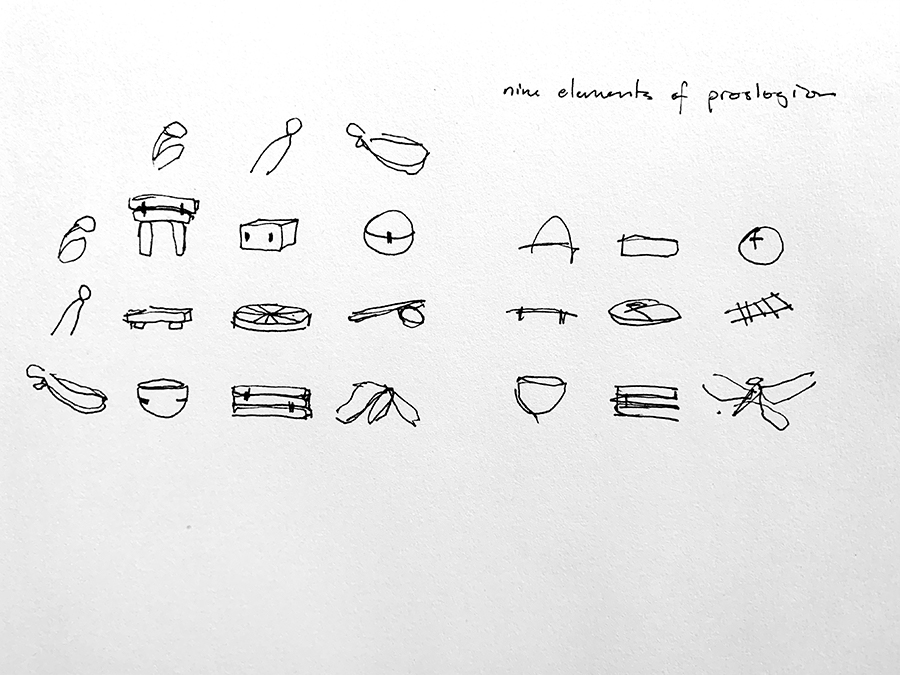 nine elements of proslogion